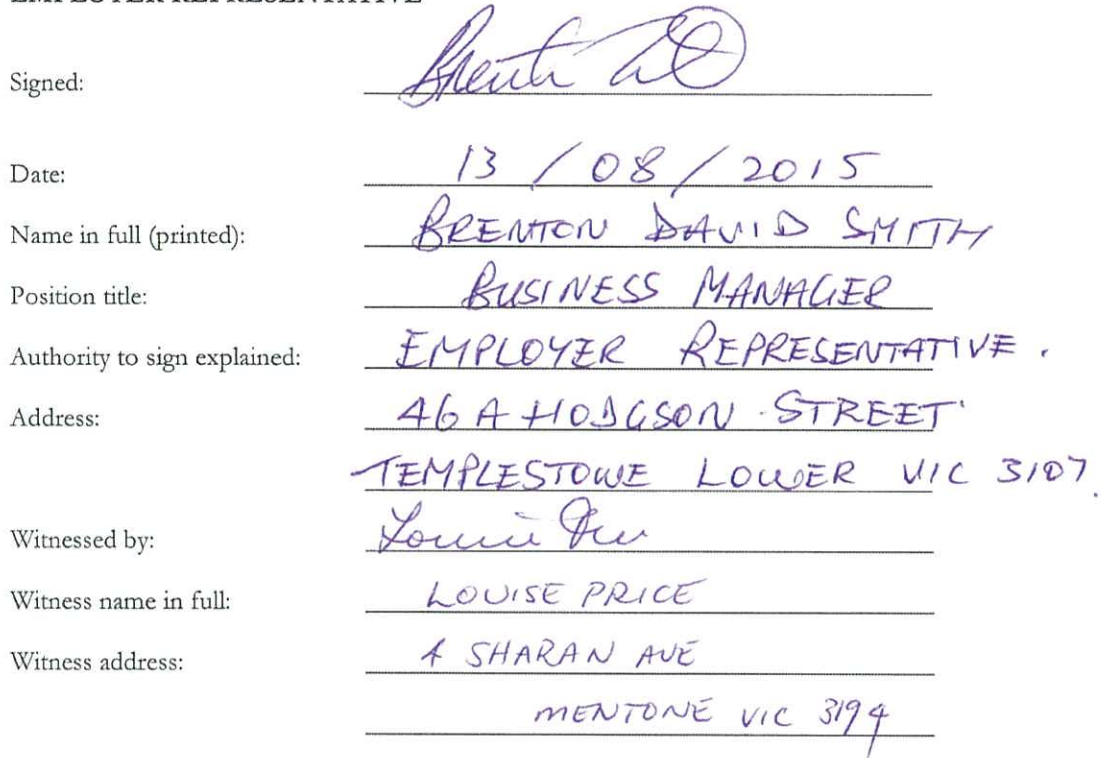 EMPLOYER REPRESENTATIVE
Signed:
Date: 13 / 08 / 2015
Name in full (printed): BRENTON DAVID SMITH
Position title: BUSINESS MANAGER
Authority to sign explained: EMPLOYER REPRESENTATIVE.
Address: 46A HODGSON STREET
TEMPLESTOWE LOWER VIC 3107.
Witnessed by:
Witness name in full: LOUISE PRICE
Witness address: 4 SHARAN AVE
MENTONE VIC 3194